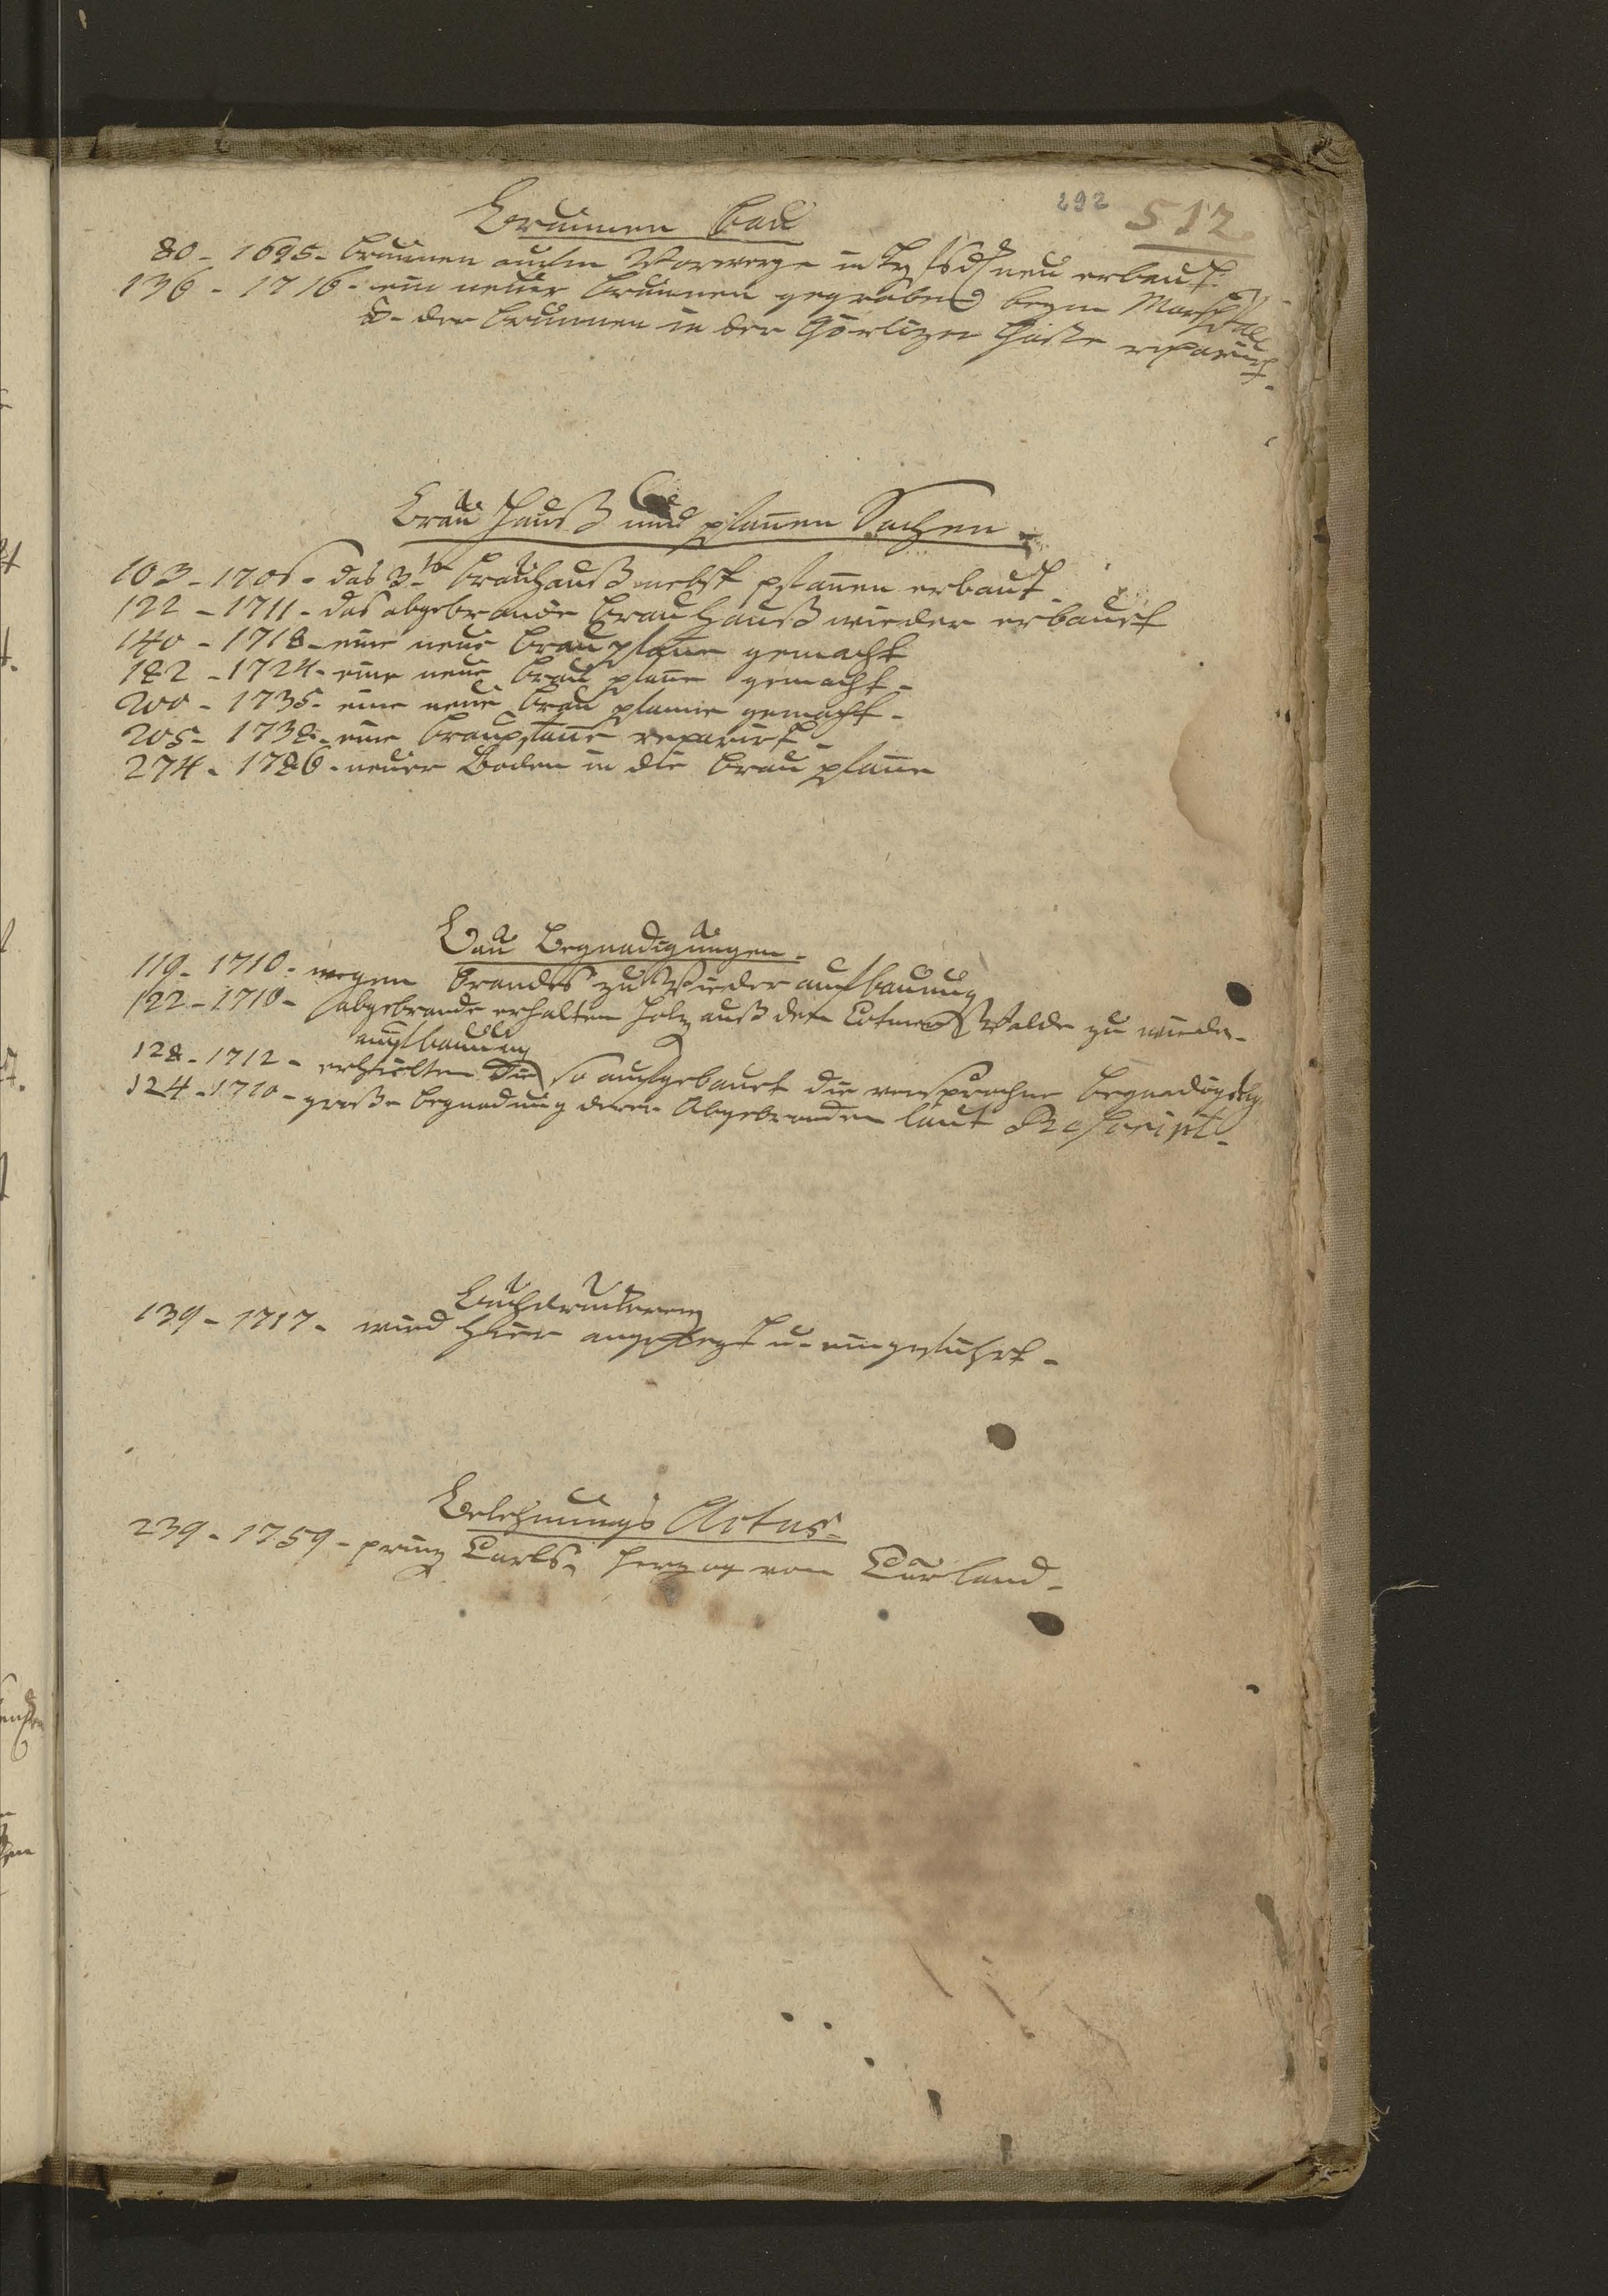 292 512
Brunnen Bau
80 - 1695 - Brunnen aufm Vorwerge in neu erbaut.
136 - 1716 - ein neuer Brunnen gegraben beym Marstall
d- der Brunnen in der Görlizer Gaße reparirt.
Brau Hauß und pfannen Sachen.
103 - 1706 - das 3te Brauhauß nebst pfannen erbaut.
122 - 1711 - das abgebrande Brau Hauß wieder erbauet
140 - 1718 - eine neue Brau pfanne gemacht
182 - 1724 - eine neue Brau pfanne gemacht.
200 - 1735 - eine neue Brau pfanne gemacht.
205 - 1738 - eine Braupfanne reparirt.
274 - 1786 - neuer Boden in die Brau pfanne
Bau Begnadigungen.
119 - 1710 - wegen Brandes zu Wieder aufbauung
122 - 1710 - abgebrande erhalten Holz auß dem Walde zu wieder-
aufbauung
128 - 1712 - erhielten die so aufgebauet die versprochne
124 - 1710 - große begnadung derer Abgebranden laut Rescript.
Buchdruckerey
139 - 1717 - wird hier angelegt u. eingeführt.
Belehnungs Actus.
239 - 1759 - prinz Carls, Herzog von Curland.